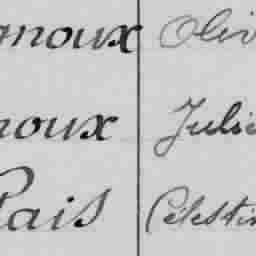 noux Oliv
noux Julie
Pais Célestin